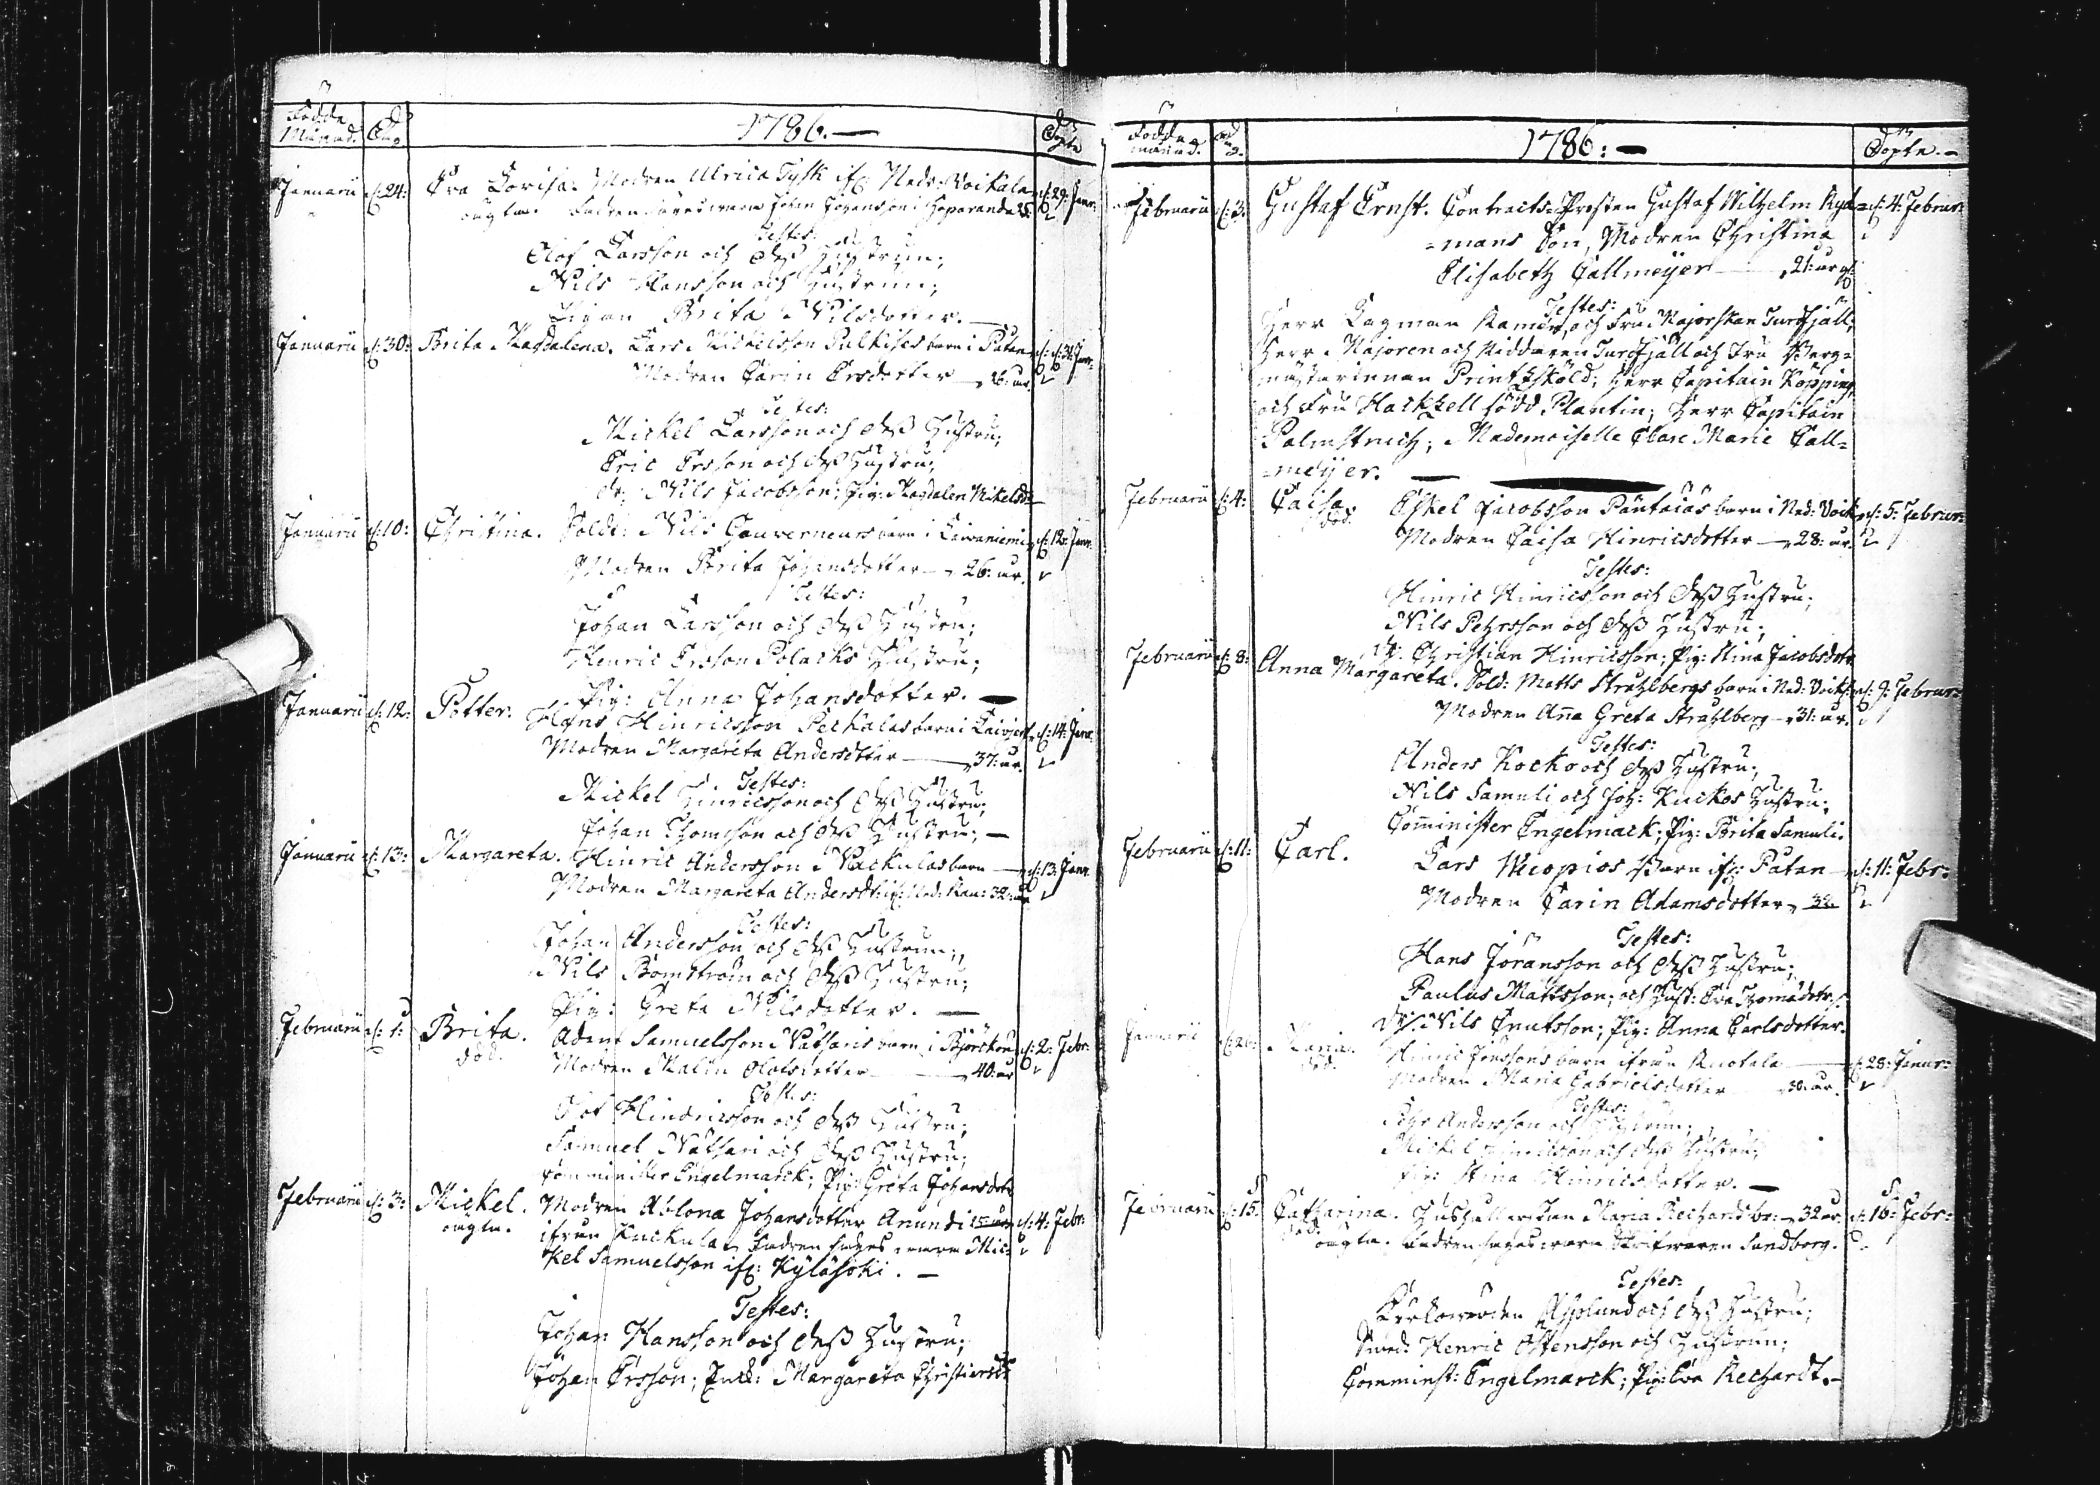 Födde
Månad. Dag
1786.—
Döpte
Januarii d: 24: Eva Lovisa. Modren Ulrica Tysk ifr: Ned: Voikala d: 29: Janr:
oägta. Fadren säges wara Johan Johansson i Haparanda
Testes:
Olof Larsson och dess Hustrun;
Nils Hansson och Hustrun;
Pigan Brita Nilsdotter.—
Januarii d: 30: Brita Magdalena. Lars Mickelsson Pulkises barn i Päkä d: 31: Janr:
Modren Carin Ersdotter — 26: år.
Testes:
Mickel Larsson och dess Hustru;
Eric Ersson och dess Hustru;
dr: Nils Jacobsson; Pig: Magdalen Mikelsdr
Januarii d: 10: Christina. Sold: Nils Gouverneurs barn i Laivaniemi d: 12: Janr:
Modren Brita Johansdotter — 26: år.
Testes:
Johan Larsson och dess Hustru;
Henric Ersson Polacks Hustru;
Pig: Anna Johansdotter.—
Januarii d: 12: Petter. Hans Hinricsson Pelkalas barn i d: 14: Janr:
Modren Margareta Andersdotter — 37: år.
Testes:
Mickel Hinricsson och dess Hustru;
Johan Thomsson och dess Hustru;—
Januarii d: 13: Margareta. Hinric Andersson Nackulas barn — d: 13: Janr
Modren Margareta Andersdtr: ifr: Ned: 32: år
Testes:
Johan Andersson och dess Hustrun;
Nils Bomström och dess Hustru;
Pig: Greta Nilsdotter.—
Februarii d: 1: Brita. Adam Samuelsson Natharis barn i Björkön d: 2: Febr:
död. Modren Malin Olofsdotter — 40: år
Testes:
Olof Hindricsson och dess Hustru;
Samuel Nathari och dess Hustru;
Comminister Engelmarck; Pig: Greta Johansdotr
Februarii d: 3: Mickel. Modren Ablona Johansdotter Anundi 25: år d: 4: Febr:
oägta. ifrån Kuckula, Fadren säges wara Mic-
kel Samuelsson ifr: Kyläjoki.—
Testes:
Johan Hansson och dess Hustru;
Johan Ersson; Enk: Margareta Christiersdr
Födde
månad. Dag.
1786:—
Döpte.—
Februarii d: 3: Gustaf Ernst. Contracts-Prosten Gustaf Wilhelm Ryd- d: 4: Februar:
-mans Son, Modren Christina
Elisabeth Callmeyer — 21: år gl:
Testes:
Herr Lagman Ramén, och Fru Majorskan Turdfjäll;
Herr Majoren och Riddaren Turdfjäll och Fru Berg-
mästarinnan Printzsköld; Herr Capitain Köpping,
och Fru Hackzell född Plantin; Herr Capitain
Palmstruch; Mademoiselle Clare Marie Call-
-meyer.—
Februarii d: 4: Caisa. Eskel Jacobsson Pantaias barn i Ned: Voik: d: 5: Februar:
död. Modren Caisa Hinricsdotter — 28: år.
Testes:
Hinric Hinricsson och dess Hustru;
Nils Pehrsson och dess Hustru;
Dr: Christian Hinricsson; Pig: Stina Jacobsdotr.
Februarii d: 8: Anna Margareta. Sold: Matts Strahlbergs barn i Ned: Voik: d: 9: Februar:
Modren Aña Greta Strahlberg — 31: år.
Testes:
Anders Kocko och dess Hustru;
Nils Samuli och Joh: Kuckos Hustru;
Com̄inister Engelmarck; Pig: Brita Samuli.
Februarii d: 11: Carl. Lars Wiopios Barn ifr: Patan — d: 11: Febr:
Modren Carin Adamsdotter, 32.
Testes:
Hans Jöransson och dess Hustru;
Paulus Mattsson; och Hust: Eva Thomædotr;
Dr: Nils Cnutsson; Pig: Anna Carlsdotter.
Januarii d: 26: Maria. Hinric Jönssons barn ifrån Ruotala — d: 28: Januar:
död. Modren Maria Gabrielsdotter — 30: år.
Testes:
Pehr Andersson och Hustrun;
Mickel Hinricsson och dess Hustru;
Pig: Stina Hinricsdotter.—
Februarii d: 15: Catharina. Hushållerskan Maria Rechardsbr: — 32 år. d: 16: Febr:
död. oägta. Fadren säges wara Skrifwaren Sundberg.
Testes:
Asplund och dess Hustru;
Smed: Henric Östensson och Hustrun;
Comminst: Engelmarck; Pig: Eva Rechardt.—